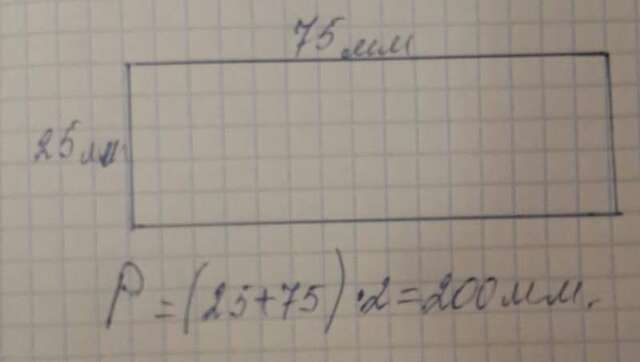 75 мм
25 мм
P = (25+75) · 2 = 200 мм.